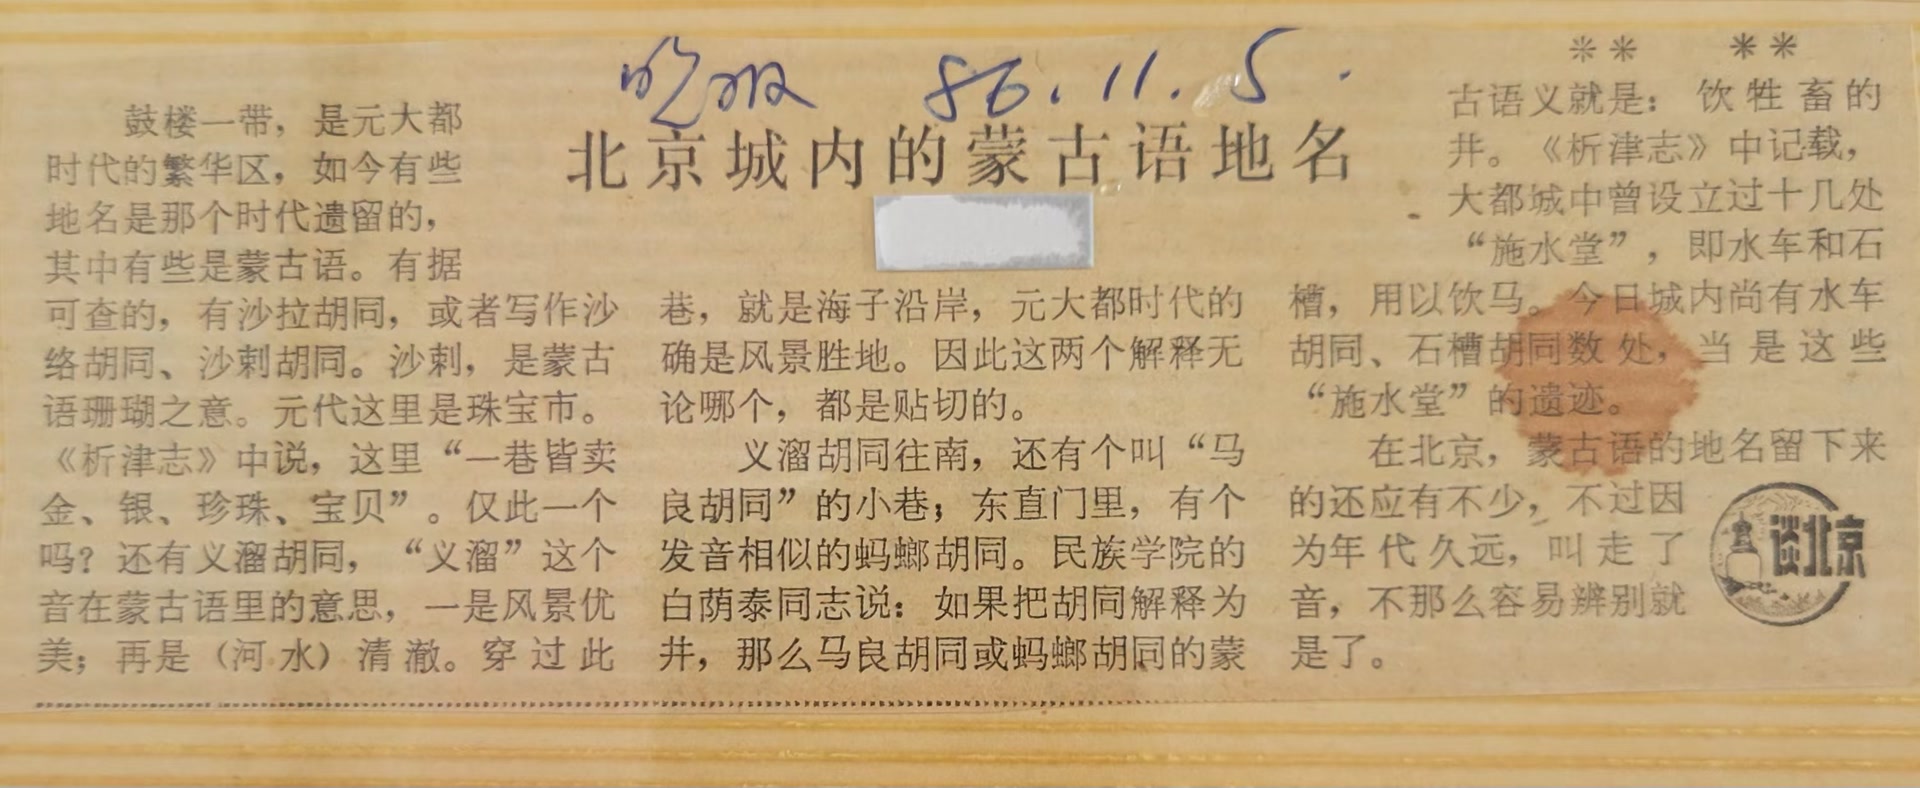 晚报 86.11.5.
北京城内的蒙古语地名
鼓楼一带，是元大都
时代的繁华区，如今有些
地名是那个时代遗留的，
其中有些是蒙古语。有据
可查的，有沙拉胡同，或者写作沙
络胡同、沙剌胡同。沙剌，是蒙古
语珊瑚之意。元代这里是珠宝市。
《析津志》中说，这里“一巷皆卖
金、银、珍珠、宝贝”。仅此一个
吗？还有义溜胡同，“义溜”这个
音在蒙古语里的意思，一是风景优
美；再是（河水）清澈。穿过此
巷，就是海子沿岸，元大都时代的
确是风景胜地。因此这两个解释无
论哪个，都是贴切的。
义溜胡同往南，还有个叫“马
良胡同”的小巷；东直门里，有个
发音相似的蚂螂胡同。民族学院的
白荫泰同志说：如果把胡同解释为
井，那么马良胡同或蚂螂胡同的蒙
古语义就是：饮牲畜的
井。《析津志》中记载，
大都城中曾设立过十几处
“施水堂”，即水车和石
槽，用以饮马。今日城内尚有水车
胡同、石槽胡同数处，当是这些
“施水堂”的遗迹。
在北京，蒙古语的地名留下来
的还应有不少，不过因
为年代久远，叫走了
音，不那么容易辨别就
是了。
谈北京